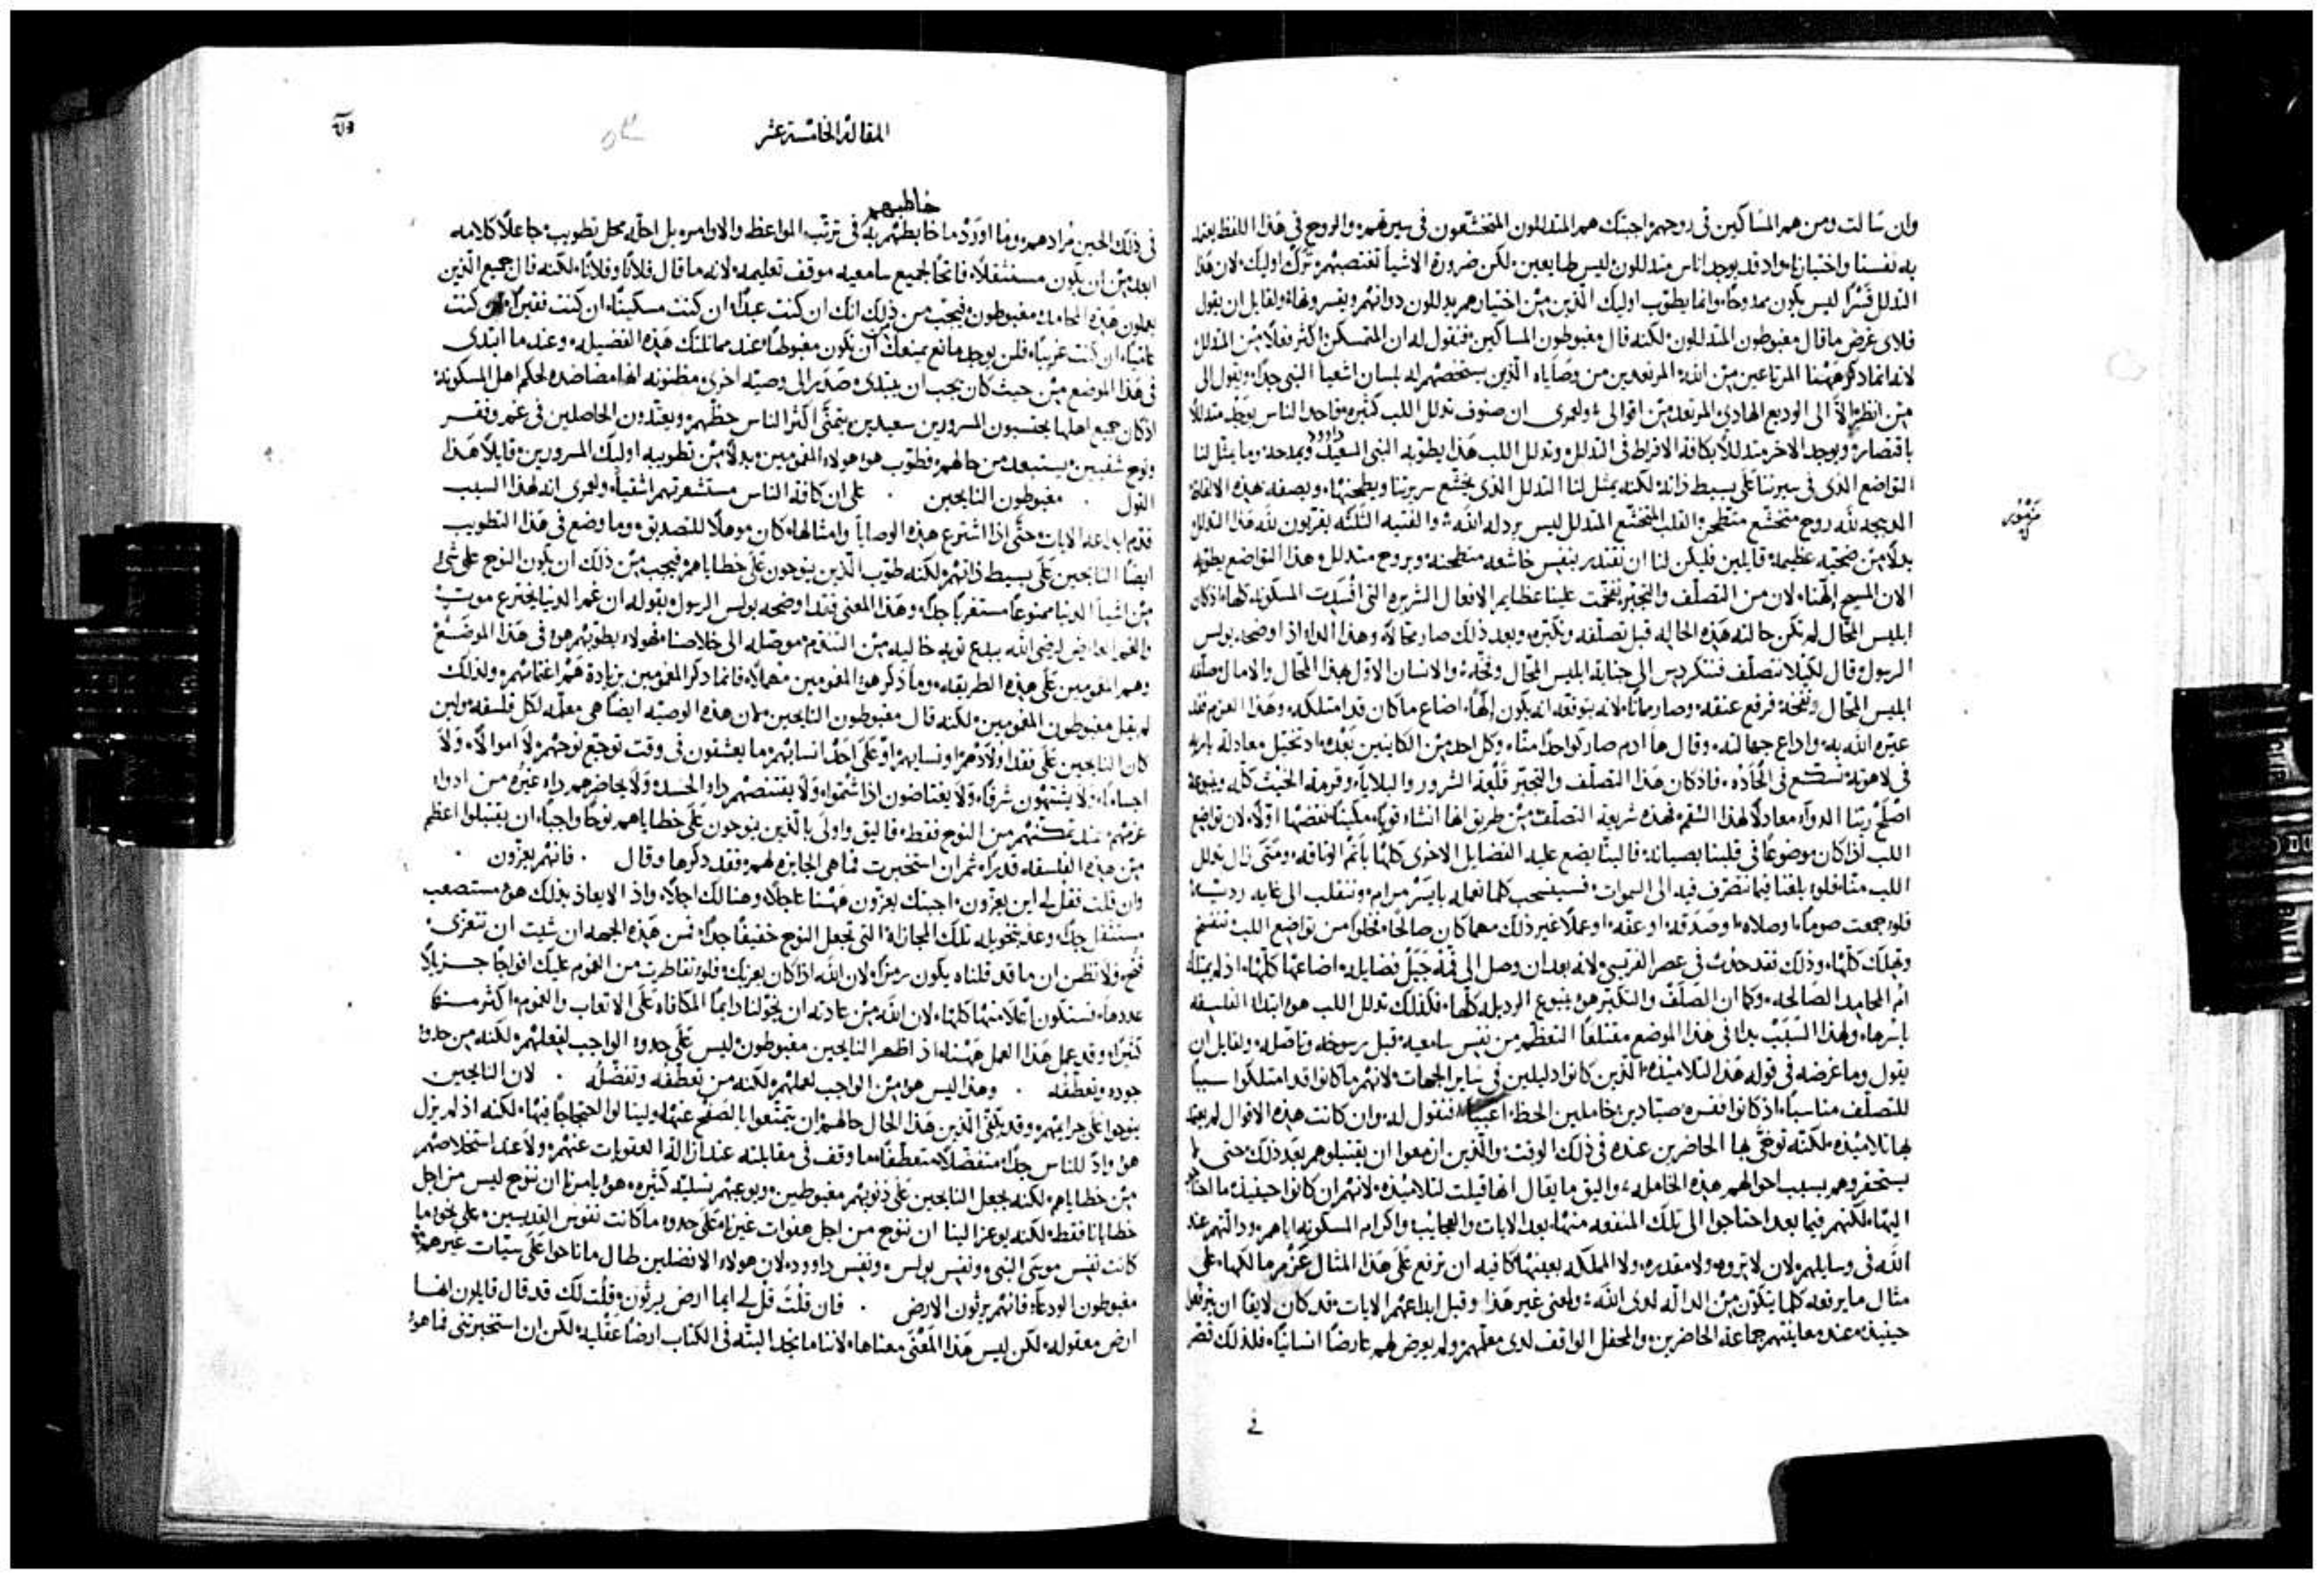 وان سالت ومن هم المساكين في روحهم اجبتك هم المتذللون المتخشعون في سيرتهم والروح في هذا اللفظ يعتد
به نفسنا واختيارنا واذ قد يوجد اناس متذللون ليس طايعين لكن ضرورة الاشيا تغتصبهم ترك اوليك لان هذا
التذلل قسرًا ليس يكون ممدوحًا وانما يطوب اوليك الذين من اختيارهم يذللون ذواتهم ويقسرونها ولقايل ان يقول
فلاى غرض ما قال مغبوطون المتذللون لكنه قال مغبوطون المساكين فنقول له ان المتمسكن اكثر فعلًا من المتذلل
لانه انما ذكر ههنا المرتاعين من الله المرتعدين من وصاياه الذين يستخصهم الله بلسان اشعيا النبي جدًا ويقول الى
من انظر الا الى الوديع الهادي المرتعد من اقوالي ولعمري ان صنوف تذلل اللب كثيره فاحد الناس يوجد متذللًا
باقتصار ويوجد الاخر متذللًا بكافة الافراط في التذلل وتذلل اللب هذا يطوبه النبي السعيد داوود ويمدحه وما يمثل لنا
التواضع الذى في سيرتنا على بسيط ذاته لكنه يمثل لنا التذلل الذى يخشع سريرتنا ويطحنها ويصفه هذه الالفاظ
الذبيحه لله روح متخشع منطحن والقلب المتخشع المتذلل ليس يرذله الله والفتيه الثلثه يقربون لله هذا التذلل
مزمور
بدلًا من ضحيه عظيمه قايلين فليكن لنا ان نقتدر بنفس خاشعه منطحنه وبروح متذلل وهذا التواضع يطوبه
الان المسيح الهنا لان من التصلف والتجبر نفخت علينا عظايم الافعال الشريره التي افسدت المسكونه كلها اذ كان
ابليس المحال لم تكن حالته هذه الحاله قبل تصلفه وتكبره وبعد ذلك صار محالًا وهذا الداء اذا اوضحه بولس
الرسول قال لكيلا نتصلف فنتكردس الى جناية ابليس المحال وفخه والانسان الاول هذا المحال والامال صلفه
ابليس المحال ونفخه فرفع عنقه وصار مائتًا لانه بتوقعه انه يكون إلهًا اضاع ما كان قد امتلكه وهذا العزم فقد
عيره الله به واذاع جهالته وقال ها ادم صار كواحدًا منا وكل احد من الكاينين بعده اذ تخيل معادلة باريه
في لاهوته تسكع في الحاده فاذ كان هذا التصلف والتجبر قلعة الشرور والبلايا وقرمة الخبث كله وينبوعه
اصلح ربنا الدوآء معادلًا لهذا السقم فهذه شريعة التصلف من طريق انها انشاء قويًا مكينًا نقضها اولًا لان تواضع
اللب اذا كان موضوعًا في قلبنا بصيانه فالبنّا يضع عليه الفضايل الاخرى كلها باتم الوثاقه ومتى زال تذلل
اللب منا فلو بلغنا فيما نتصرف فيه الى السموات فسينسحب كلما نعمله بايسر مرام وننقلب الى غايه رديه
فلو جمعت صومًا او صلاه او صدقه او عفه او عملًا غير ذلك مهما كان صالحًا مخلوا من تواضع اللب تنفسخ
وتهلك كلها وذلك فقد حدث في عصر الفريسي لانه بعد ان وصل الى قمة جبل فضايله اضاعها كلها اذ لم يمتلك
ام المحامد الصالحه وكما ان الصلف والتكبر هو ينبوع الرذيله كلها فكذلك تذلل اللب هو ابتدا الفلسفه
باسرها ولهذا السبب بدا في هذا الموضع مقتلعًا التعظم من نفس سامعيه قبل رسوخه وتاصله ولقايل ان
يقول وما غرضه في قوله هذا التلاميذه الذين كانوا ذليلين في ساير الجهات لانهم ما كانوا قد امتلكوا سببًا
للتصلف مناسبًا اذ كانوا نفسه صيادين خاملين الحظ اغبيا فنقول له وان كانت هذه الاقوال لم يعتد
بها تلاميذه لكنه توخى بها الحاضرين عنده في ذلك الوقت والذين ازمعوا ان يقتبلوهم بعد ذلك حتى لا
يستحقروهم بسبب احوالهم هذه الخامله واليق ما يقال انها قيلت لتلاميذه لانهم ان كانوا حينيذ ما احتاجوا
اليها لكنهم فيما بعد احتاجوا الى تلك المنفعه منها بعد الايات والعجايب واكرام المسكونه اياهم ودالتهم عند
الله في وسايلهم لان لا ثروه ولا مقدره ولا المملكه بعينها كافيه ان ترفع على هذا المثال عزم مالكها على
مثال ما يرفعه كلما يتكون من الدالة لدى الله ولعني غير هذا وقبل ابداعهم الايات قد كان لايقًا ان يترفعوا
حينيذ عند معاينتهم جماعة الحاضرين والمحفل الواقف لدى معلمهم ولم يعرض لهم عارضًا انسانيًا فلذلك قصر
في
المقالة الخامسة عشر
خاطبهم
في ذلك الحين مرادهم وما اورد ما خاطبهم به في ترتب المواعظ والاوامر بل احله محل تطويب جاعلًا كلامه
ابعد من ان يكون مستثقلًا فاتحًا لجميع سامعيه موقف تعليمه لانه ما قال فلانًا وفلانًا لكنه قال جميع الذين
يعملون هذه المحامد مغبوطون فيجب من ذلك انك ان كنت عبدًا ان كنت مسكينًا ان كنت فقيرًا ان كنت
عانيًا ان كنت غريبًا فلن يوجد مانع يمنعك ان تكون مغبوطًا عند مماثلتك هذه الفضيله وعند ما ابتدى
في هذا الموضع من حيث كان يجب ان يبتدى صدر الى وصيه اخرى مظنونه انها مضاده لحكم اهل المسكونه
اذ كان جميع اهلها يحتسبون المسرورين سعيدين يتمنى اكثر الناس حظهم ويعتدون الحاصلين في غم وفقر
ونوح شقيين يستبعد من حالهم فطوب هو هولاء المغمومين بدلًا من تطويبه اوليك المسرورين قايلًا هذا
القول . مغبوطون النايحين . على ان كافة الناس مستشعرتهم اشقيا ولعمري انه لهذا السبب
قدم ابداعه الايات حتى اذا اشترع هذه الوصايا وامثالها كان موهلًا للتصديق وما وضع في هذا التطويب
ايضًا النايحين على بسيط ذاتهم لكنه طوب الذين ينوحون على خطاياهم فيجب من ذلك ان يكون النوح على شى
من اشيا الدنيا ممنوعًا مستقربًا جدًا وهذا المعنى فقد اوضحه بولس الرسول بقوله ان غم الدنيا يخترع موت
والغم العارض لرضى الله يبدع توبه خاليه من التندم موصله الى خلاصنا فهولاء يطوبهم هو في هذا الموضع
وهم المغمومين على هذه الطريقه وما ذكر هو المغمومين مهملًا فانما ذكر المغمومين بزيادة هم اغتمامهم ولذلك
لم يقل مغبوطون المغمومين لكنه قال مغبوطون النايحين لان هذه الوصيه ايضًا هي معلمه لكل فلسفه ولين
كان النايحين على فقد اولادهم او نسايهم او على احد انسابهم ما يعشقون في وقت توجع نوحهم لا اموالًا ولا
اجسامًا ولا يشتهون شرفًا ولا يغتاضون اذا شتموا ولا يقتنصهم داء الحسد ولا يحاضرهم داء غيره من ادواء
عزمهم عند تمكنهم من النوح فقط فاليق واولى بالذين ينوحون على خطاياهم نوحًا واجبًا ان يقتبلوا اعظم
من هذه الفلسفه قدرًا ثم ان استخبرت فما هي الجايزه لهم فقد ذكرها وقال . فانهم يعزون .
وان قلت فقل لي اين يعزون اجبتك يعزون ههنا عاجلًا وهنالك اجلًا واذ الايعاز بذلك هو مستصعب
مستثقل جدًا وعد بتخويله تلك المجازاة التي تجعل النوح خفيفًا جدًا فمن هذه الجهه ان شيت ان تتعزى
فنح ولا تظن ان ما قد قلناه يكون رمزًا لان الله اذا كان يعزيك فلو تقاطرت من الغموم عليك افواجًا جزيلًا
عددها فستكون اعلا منها كلها لان الله من عادته ان يخولنا دايمًا المكافاه على الاتعاب والغموم اكثر منها
كثيرًا وقد عمل هذا العمل ههنا اذ اظهر النايحين مغبوطون ليس على حدود الواجب لفعلهم لكنه من حدود
جوده وتعطفه . وهذا ليس هو من الواجب لعملهم لكنه من تعطفه وتفضله . لان النايحين
ينوحوا على جرايمهم وقد يكفى الذين هذا الحال حالهم ان يتمتعوا بالصفح عنها وينالوا احتجاجًا فيها لكنه اذ لم يزل
هو وادّ للناس جدًا متفضلًا متعطفًا ما وقف في مقابلته عند ازالة العقوبات عنهم ولا عند استخلاصهم
من خطاياهم لكنه يجعل النايحين على ذنوبهم مغبوطين ويوعبهم تسليه كثيره هو يامرنا ان ننوح ليس من اجل
خطايانا فقط لكنه يوعز الينا ان ننوح من اجل هفوات غيرنا على حدود ما كانت نفوس القديسين على نحو ما
كانت نفس موسى النبي ونفس بولس ونفس داوود لان هولاء الافضلين طال ما ناحوا على سيات غيرهم
مغبوطون الودعا فانهم يرثون الارض . فان قلت قل لي ايما ارض يرثون قلت لك قد قال قايلون انها
ارض معقوله لكن ليس هذا المعنى معناها لاننا ما نجد البته في الكتاب ارضًا عقليه لكن ان استخبرتني فما هو